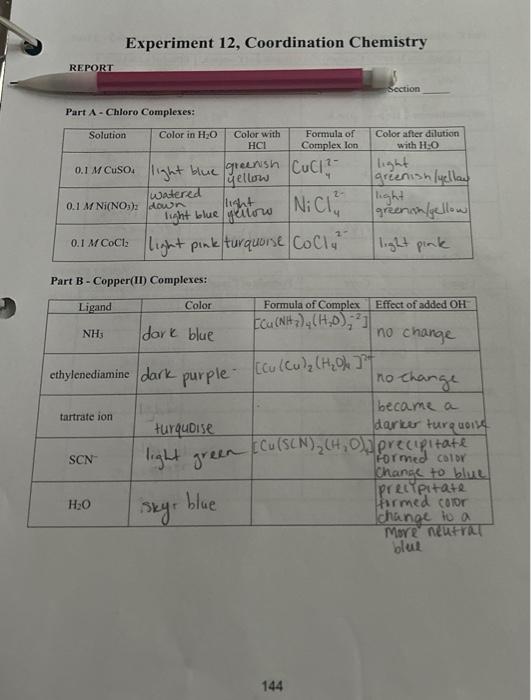 Experiment 12, Coordination Chemistry
REPORT
Section
Part A - Chloro Complexes:
Solution Color in H₂O Color with HCl Formula of Complex Ion Color after dilution with H₂O
0.1 M CuSO₄ light blue greenish yellow CuCl₄²⁻ light greenish/yellow
0.1 M Ni(NO₃)₂ watered down light blue light yellow NiCl₄²⁻ light greenish/yellow
0.1 M CoCl₂ light pink turquoise CoCl₄²⁻ light pink
Part B - Copper(II) Complexes:
Ligand Color Formula of Complex Effect of added OH⁻
NH₃ dark blue [Cu(NH₃)₄(H₂O)₂⁻²] no change
ethylenediamine dark purple [Cu(Cu)₂(H₂O)₄]²⁺ no change
tartrate ion turquoise became a darker turquoise
SCN⁻ light green [Cu(SCN)₂(H₂O)₄] precipitate formed color change to blue
H₂O sky blue precipitate formed color change to a more neutral blue
144